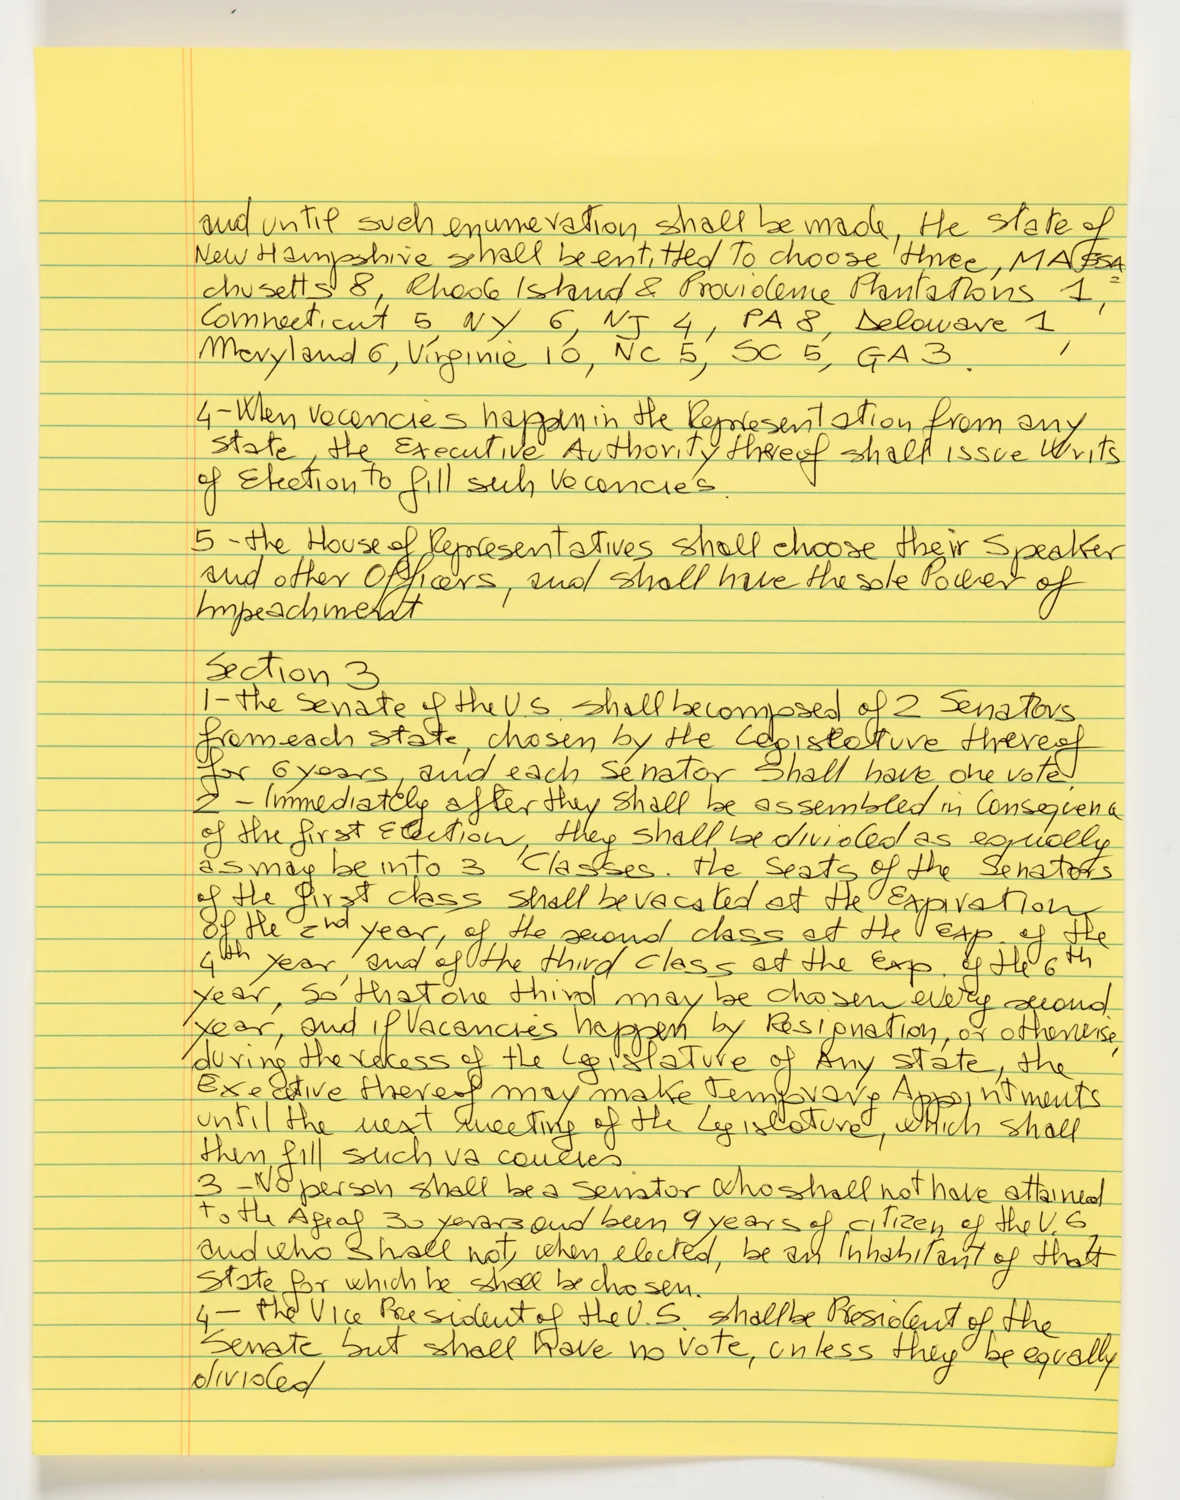 and until such enumeration shall be made, the state of
New Hampshire shall be entitled to choose three, MASSA=
chusetts 8, Rhode Island & Providence Plantations 1,
Connecticut 5, NY 6, NJ 4, PA 8, Delaware 1,
Maryland 6, Virginie 10, NC 5, SC 5, GA 3.
4-When vacancies happen in the Representation from any
state, the Executive Authority thereof shall issue Writs
of Election to fill such Vacancies.
5 -the House of Representatives shall choose their Speaker
and other Officers, and shall have the sole Power of
Impeachment
Section 3
1-the Senate of the U.S. shall be composed of 2 Senators
from each state, chosen by the Legislature thereof
for 6 years, and each Senator shall have one vote.
2 - Immediately after they shall be assembled in Consequence
of the first Election, they shall be divided as equally
as may be into 3 Classes. the Seats of the Senators
of the first class shall be vacated at the Expiration
of the 2nd year, of the second class at the Exp. of the
4th year, and of the third Class at the Exp. of the 6th
year, so that one third may be chosen every second
year, and if Vacancies happen by Resignation, or otherwise,
during the recess of the Legislature of Any state, the
Executive thereof may make temporary Appointments
until the next meeting of the Legislature, which shall
then fill such vacancies
3 -No person shall be a Senator who shall not have attained
to the Age of 30 years and been 9 years of citizen of the U.S,
and who shall not, when elected, be an Inhabitant of that
state for which he shall be chosen.
4- the Vice President of the U.S. shall be President of the
Senate but shall have no Vote, unless they be equally
divided